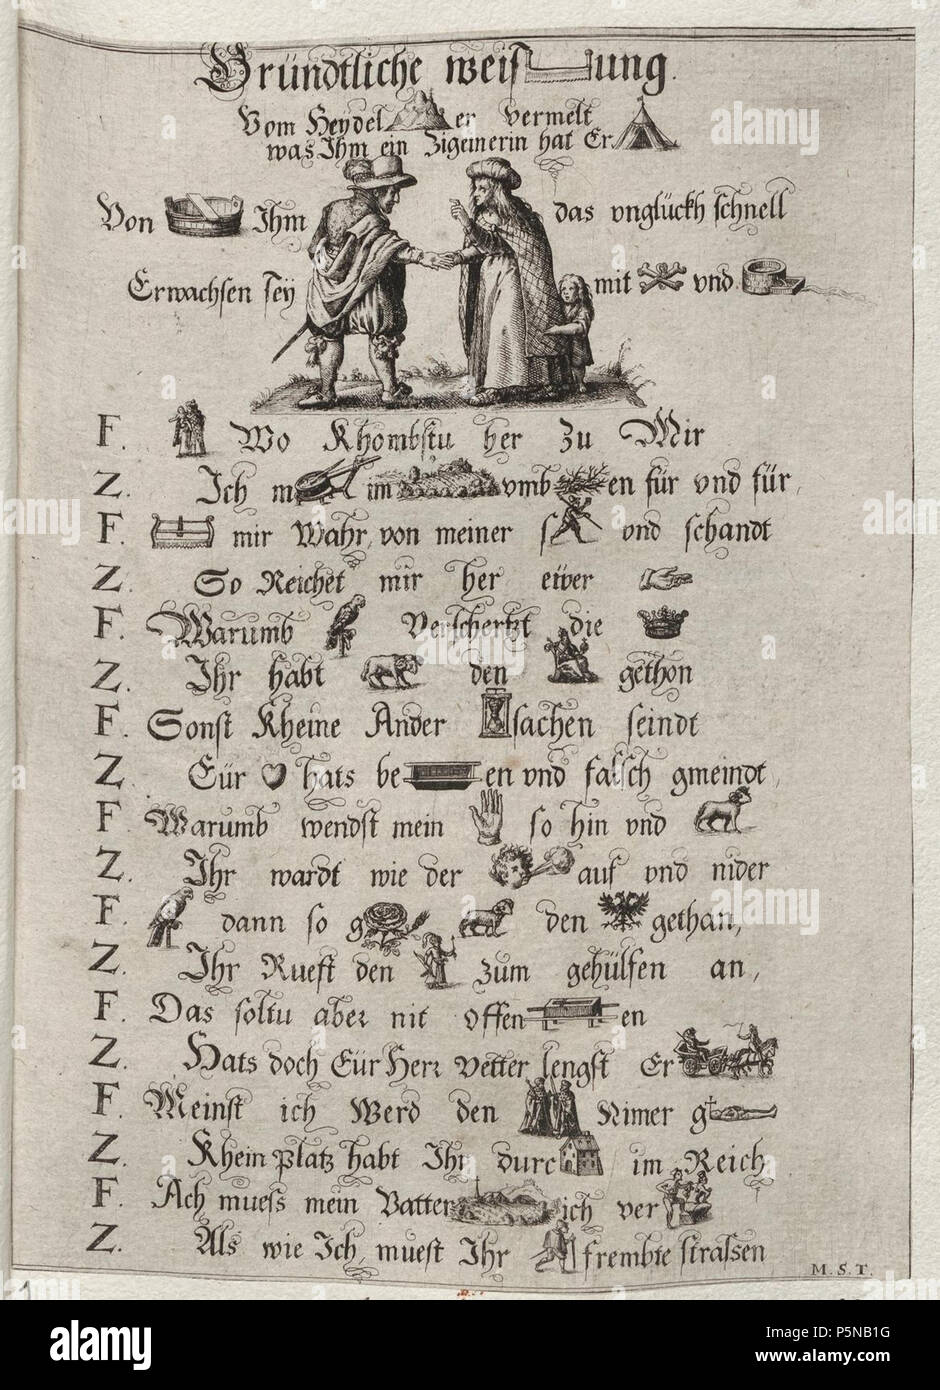 Gründtliche weis ung.
Vom Heydel er vermelt
was Ihm ein Zigeinerin hat Er
Von Ihm das vnglückh schnell
Erwachsen sey mit vnd
F. Wo Khombstu her zu Mir
Z. Ich m im vmb en für vnd für,
F. mir Wahr, von meiner s vnd schandt
Z. So Reichet mir her eiver
F. Warumb Verschertzt die
Z. Ihr habt den gethon
F. Sonst Kheine Ander sachen seindt
Z. Eür hats be en vnd falsch gmeindt,
F. Warumb wendst mein so hin vnd
Z. Ihr wardt wie der auf vnd nider
F. dann so g den gethan,
Z. Ihr Rueft den zum gehülfen an,
F. Das soltu aber nit offen en
Z. Hats doch Eür Herr Vetter lengst Er
F. Meinst ich Werd den Nimer g
Z. Khein Platz habt Ihr durc im Reich
F. Ach muess mein Vatter ich ver
Z. Als wie Ich, muest Ihr frembte strassen
M. S. T.
alamy
alamy stock photo
P5NB1G
www.alamy.com